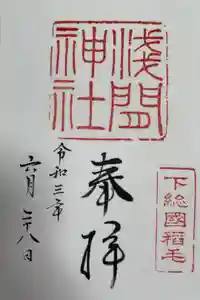 浅間神社
下総國稲毛
奉拝
令和三年
六月二十八日